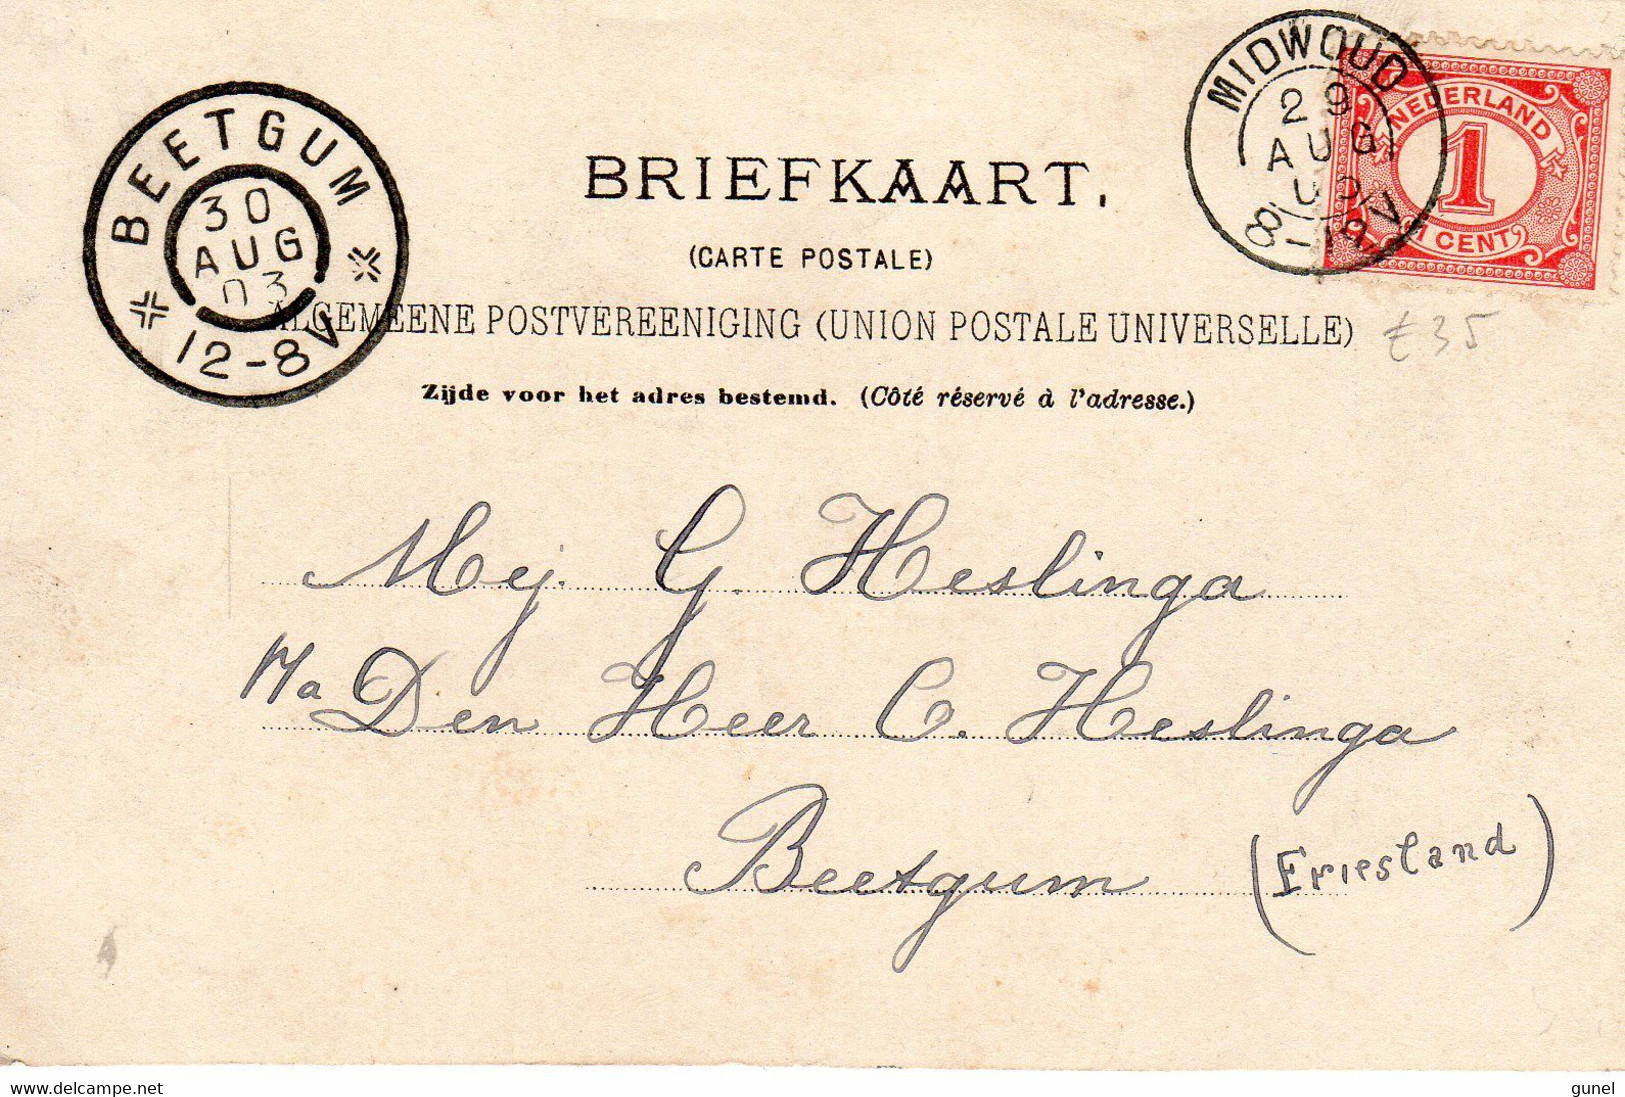 MIDWOUD
29
AUG
8-
NEDERLAND
1
1 CENT
BEETGUM
30
AUG
03
12-8V
BRIEFKAART.
(CARTE POSTALE)
ALGEMEENE POSTVEREENIGING (UNION POSTALE UNIVERSELLE)
£35
Zijde voor het adres bestemd. (Côté réservé à l'adresse.)
Mej. G. Heslinga
Den Heer C. Heslinga
Beetgum (Friesland)
www.delcampe.net
gunel